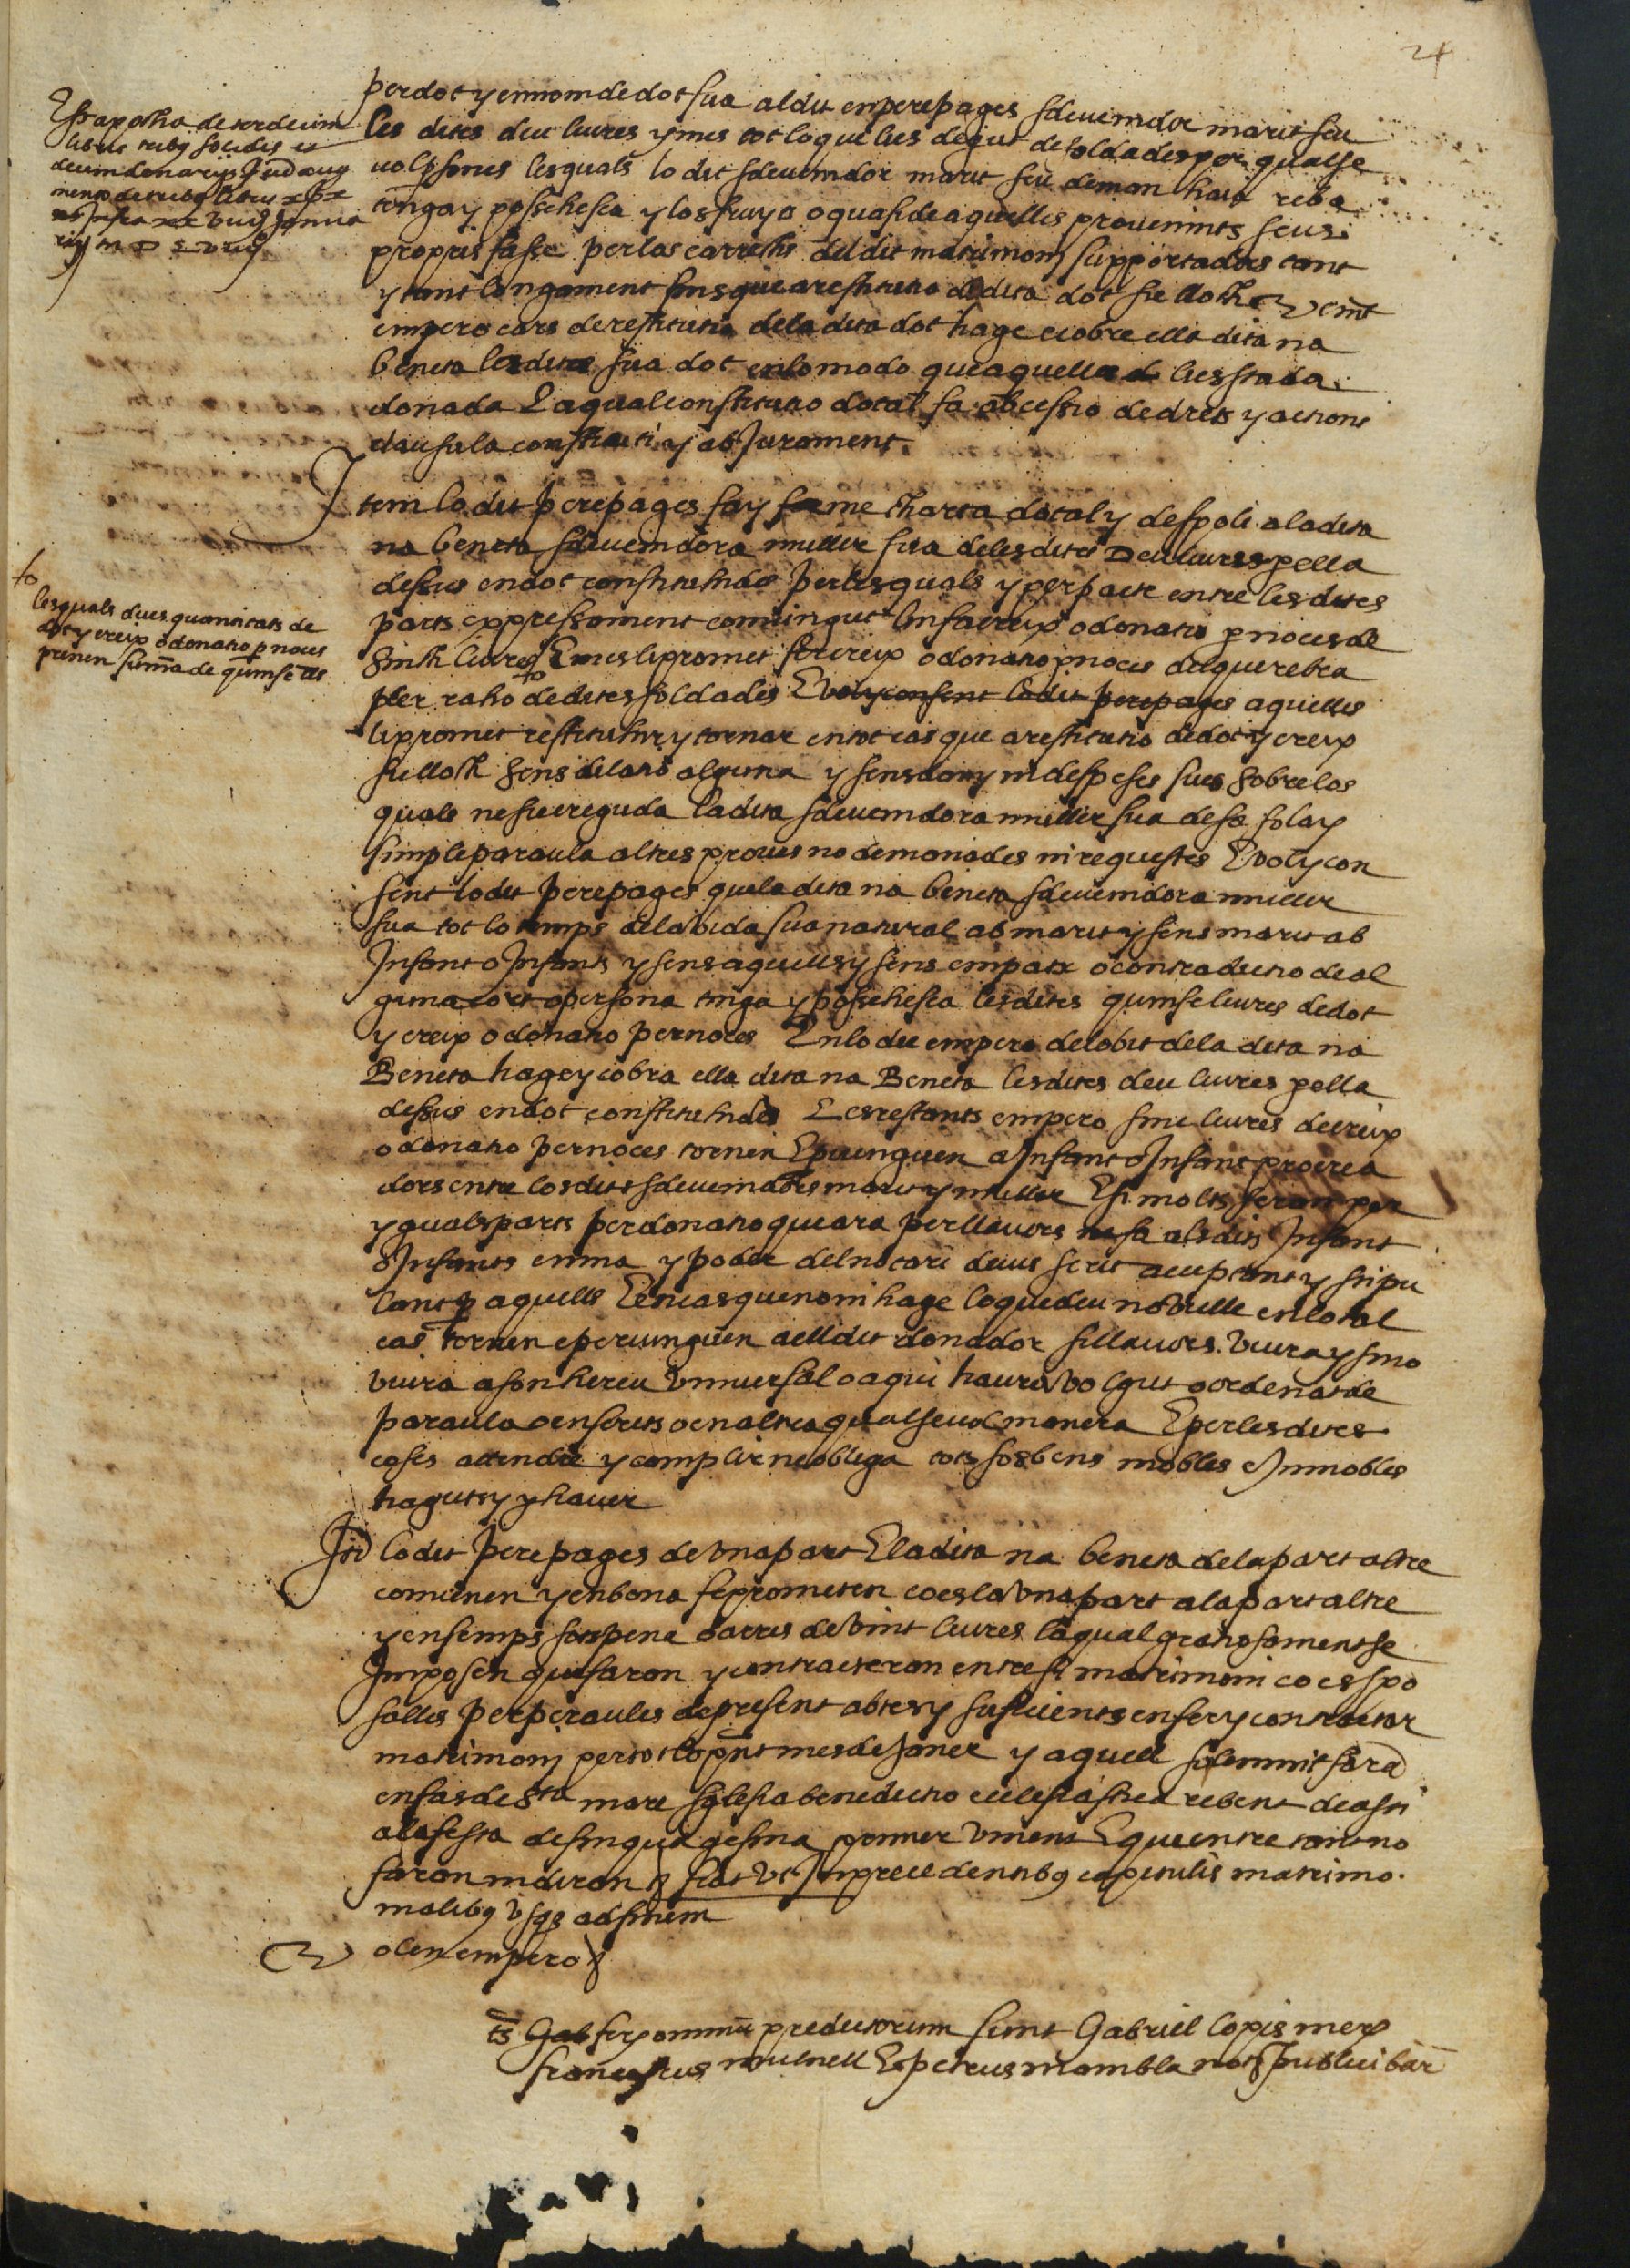 24
Est apocha de tredecim
libris tribus solidis et
decem denarijs Et de aug
mento de tribus libris
rij M D
per dot y en nom de dot sua al dit en pere pages sdevenidor marit seu
les dites deu liures y mes tot lo que lies degut de soldades per qualse
vol psones lesquals lo dit sdevenidor marit seu deman haia reba
tenga y possehesca y los fruyts o quasi de aquelles provenints seus
propris fasse per los carrechs del dit matrimonj supportadors tant
y tant longament fins que a restitutio de dita dot sie lloch E venint
empero cars de restitutio de la dita dot hage e cobre ella dita na
Beneta la dita sua dot en lo modo que aquella li es stada
donada La qual constitutio dotal fa ab cessio de drets y actions
clausula constituti y ab Jurament
Item lo dit pere pages fa y ferme charta dotal y despoli a la dita
na beneta sdevenidora muller sua de les dites Deu liures p ella
dessus en dot constituhides per les quals y per pacte entre les dites
parts expressament convingut lin fa creix o donatio p noces de
sinch liures E mes li promet fer creix o donatio p noces del que rebra
+o
lesquals dues quantitats de
dot y creix o donatio p noces
prenen summa de quinse lls
per raho de dites soldades E vol y consent lo dit pere pages aquelles
li promet restituhir y tornar en tot cas que a restitutio de dot y creix
sie lloch sens dilatio alguna y sens dany ni despeses sues sobre los
quals ne sie creguda la dita sdevenidora muller sua de sa sola y
simple paraula altres proves no demanades ni requestes E vol y con
sent lo dit pere pages que la dita na beneta sdevenidora muller
sua tot lo temps de la vida sua natural ab marit y sens marit ab
Infant o Infants y sens aquells y sens empatx o contradictio de al
guna cort o persona tinga y possehesca les dites quinse liures de dot
y creix o donatio per noces En lo die empero del obit de la dita na
Beneta hage y cobra ella dita na Beneta les dites deu liures p ella
dessus en dot constituhides Les restants empero sinc liures de creix
o donatio per noces tornen E pervinguen a Infant o Infants procrea
dors entre los dits sdevenidors marit y muller E si molts seran per
yguals parts per donatio que ara per llavors ne fa als dits Infant
o Infants en ma y poder del notari devus scrit acceptant y stipu
lant p aquells E en cas que noni hage lo que deu no vulle en lo tal
cas tornen e pervinguen a ell dit donador si llavors viura y sino
viura a son hereu universal o a qui haura volgut o ordenat de
paraula o en scrits o en altra qualsevol manera E per les dites
coses attendre y complir ne obliga tots sos bens mobles e Inmobles
haguts y p haver
Itm lo dit pere pages de una part E la dita na beneta de la part altre
convenen y en bona fe prometen co es la una part a la part altre
y ensemps sots pena o arres de vint liures la qual gratiosament se
Imposen que faran y contractaran entre si matrimoni co es spo
salles per paraules de present abtes y suficients en fer y contractar
matrimonj per tot lo pnt mes de Janer y aquell solemnitsara
en fas de sta mare sglesia benedictio ecclesiastica rebent de assi
a la festa de sinquagesma primer vinent E que entre tant no
faran ni diran &c fiat ut In precedentibus capitulis matrimo
nialibus usqs ad finem
olen empero &c
ts Gab sex ommu predictorum sunt Gabriel lopis mer
franciscus Et petrus mambla nots publici bar